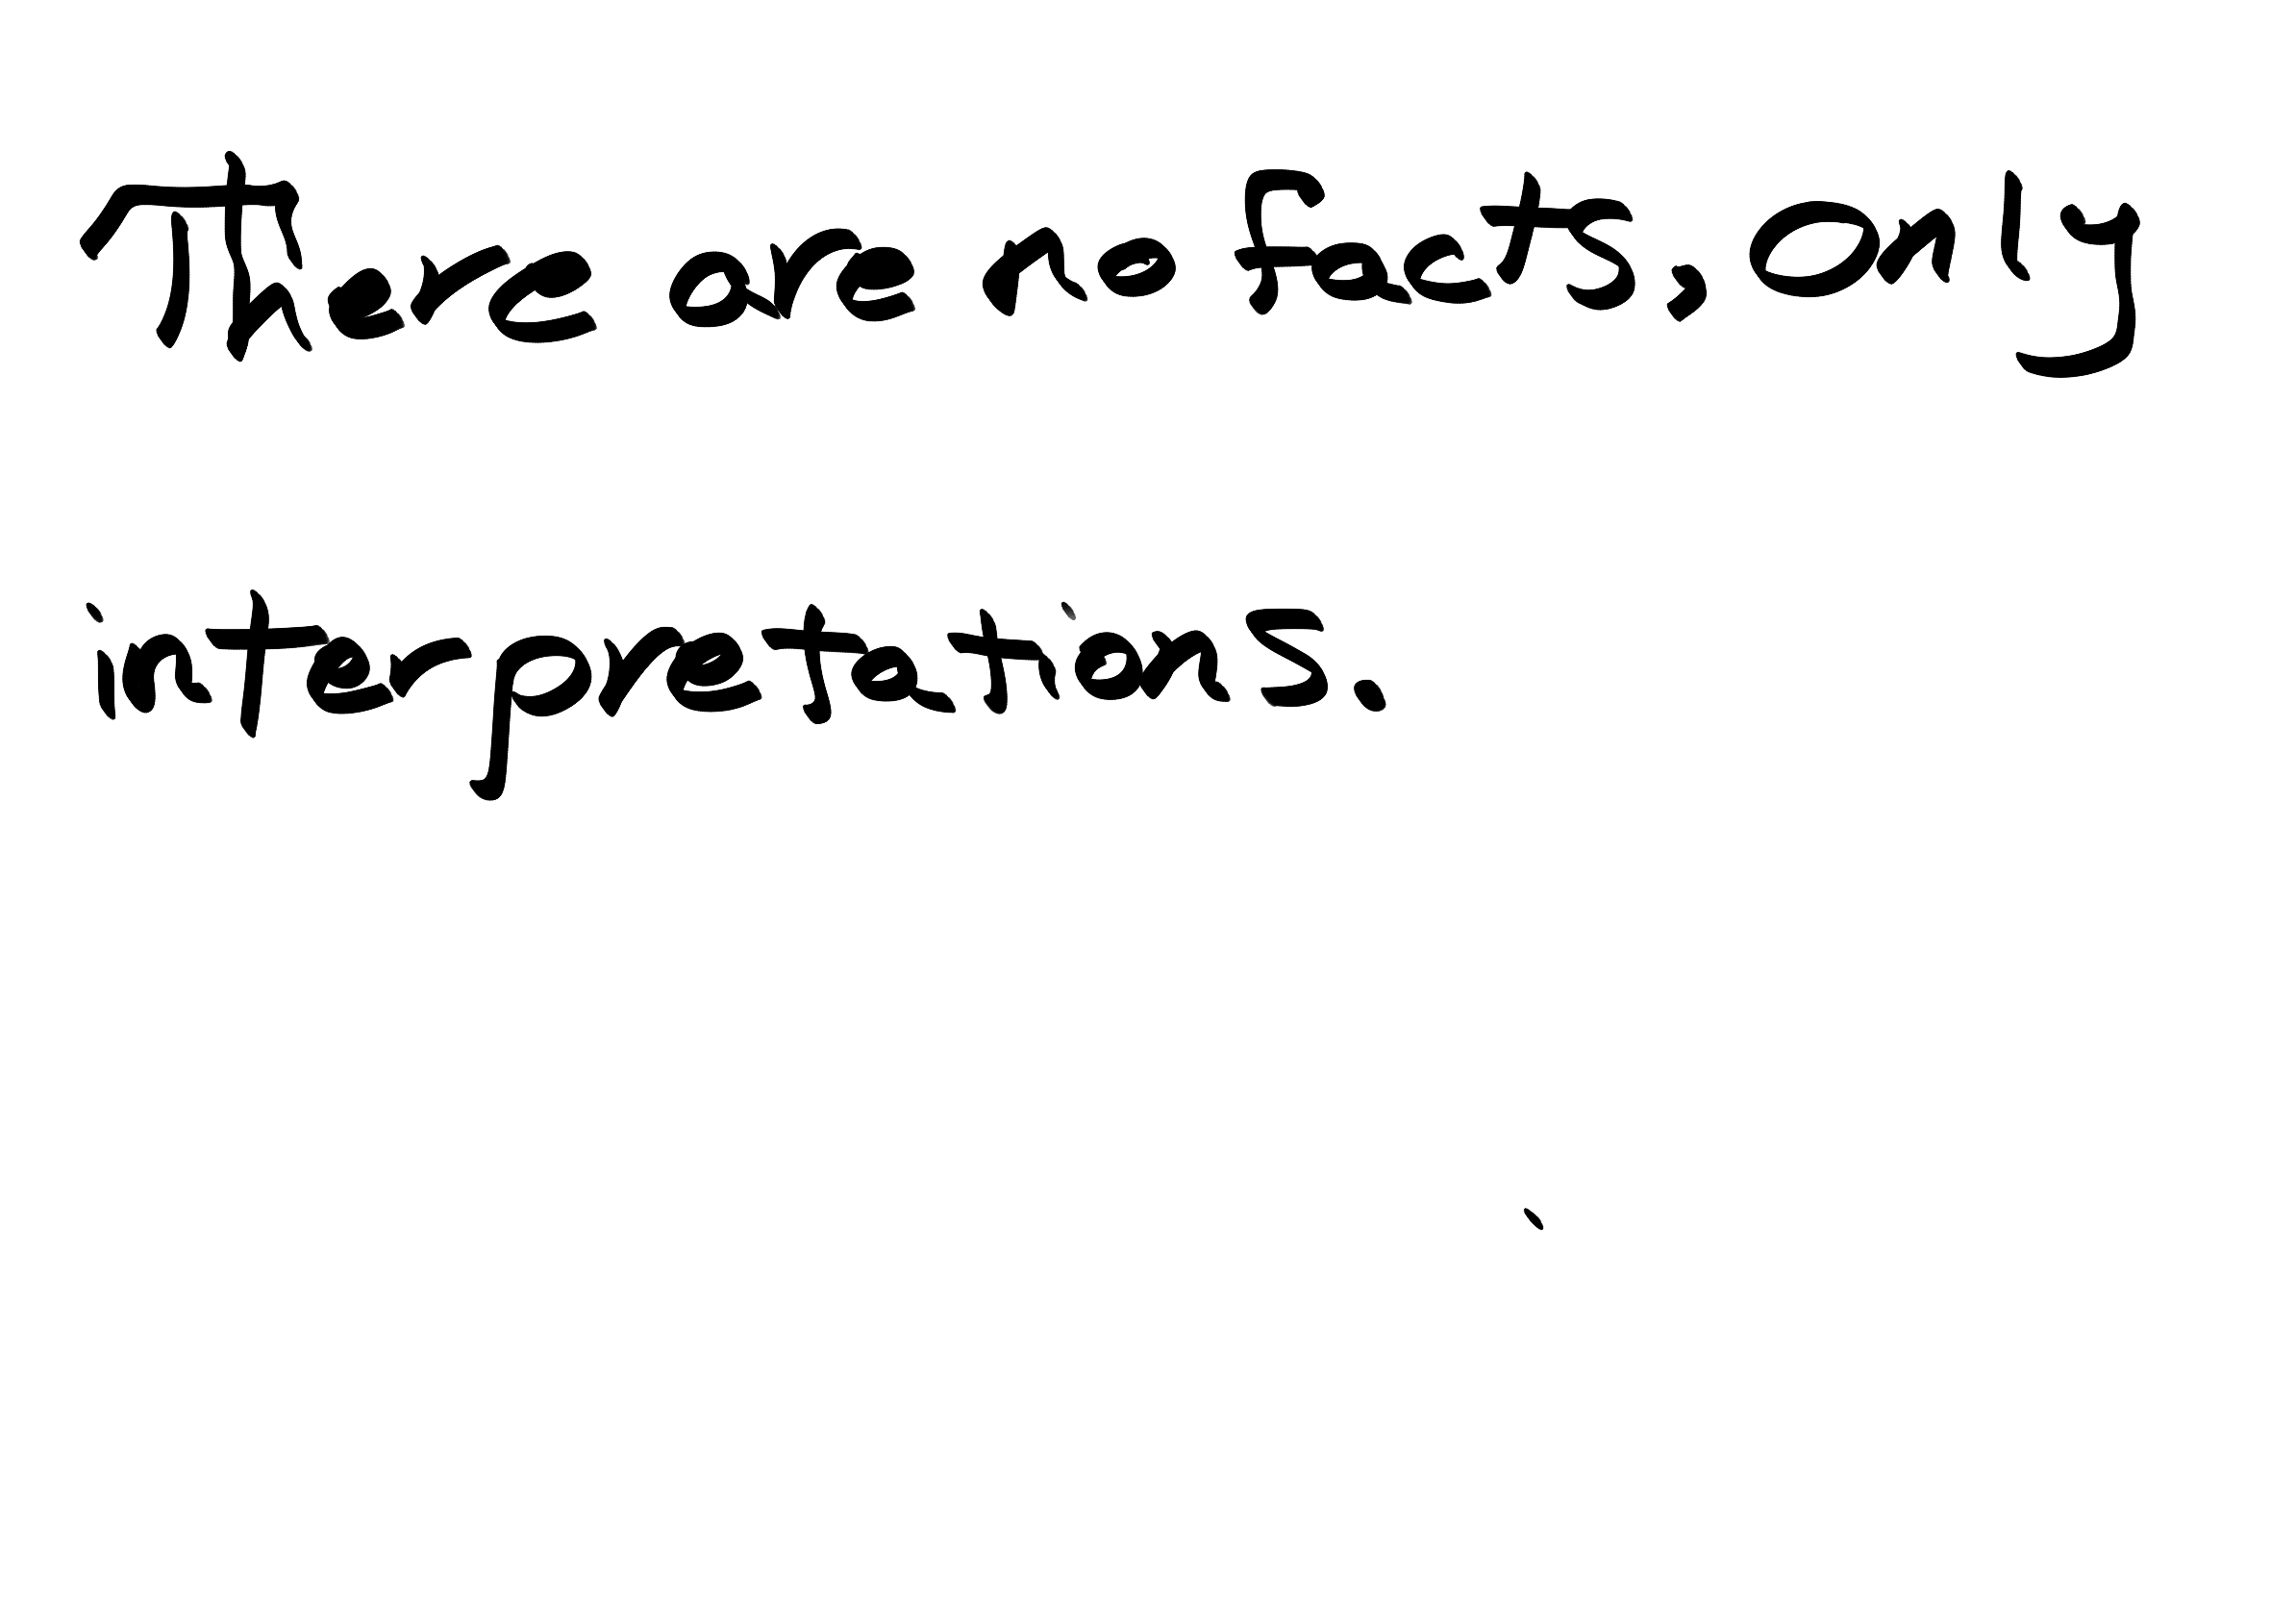 There are no facts, only
interpretations.